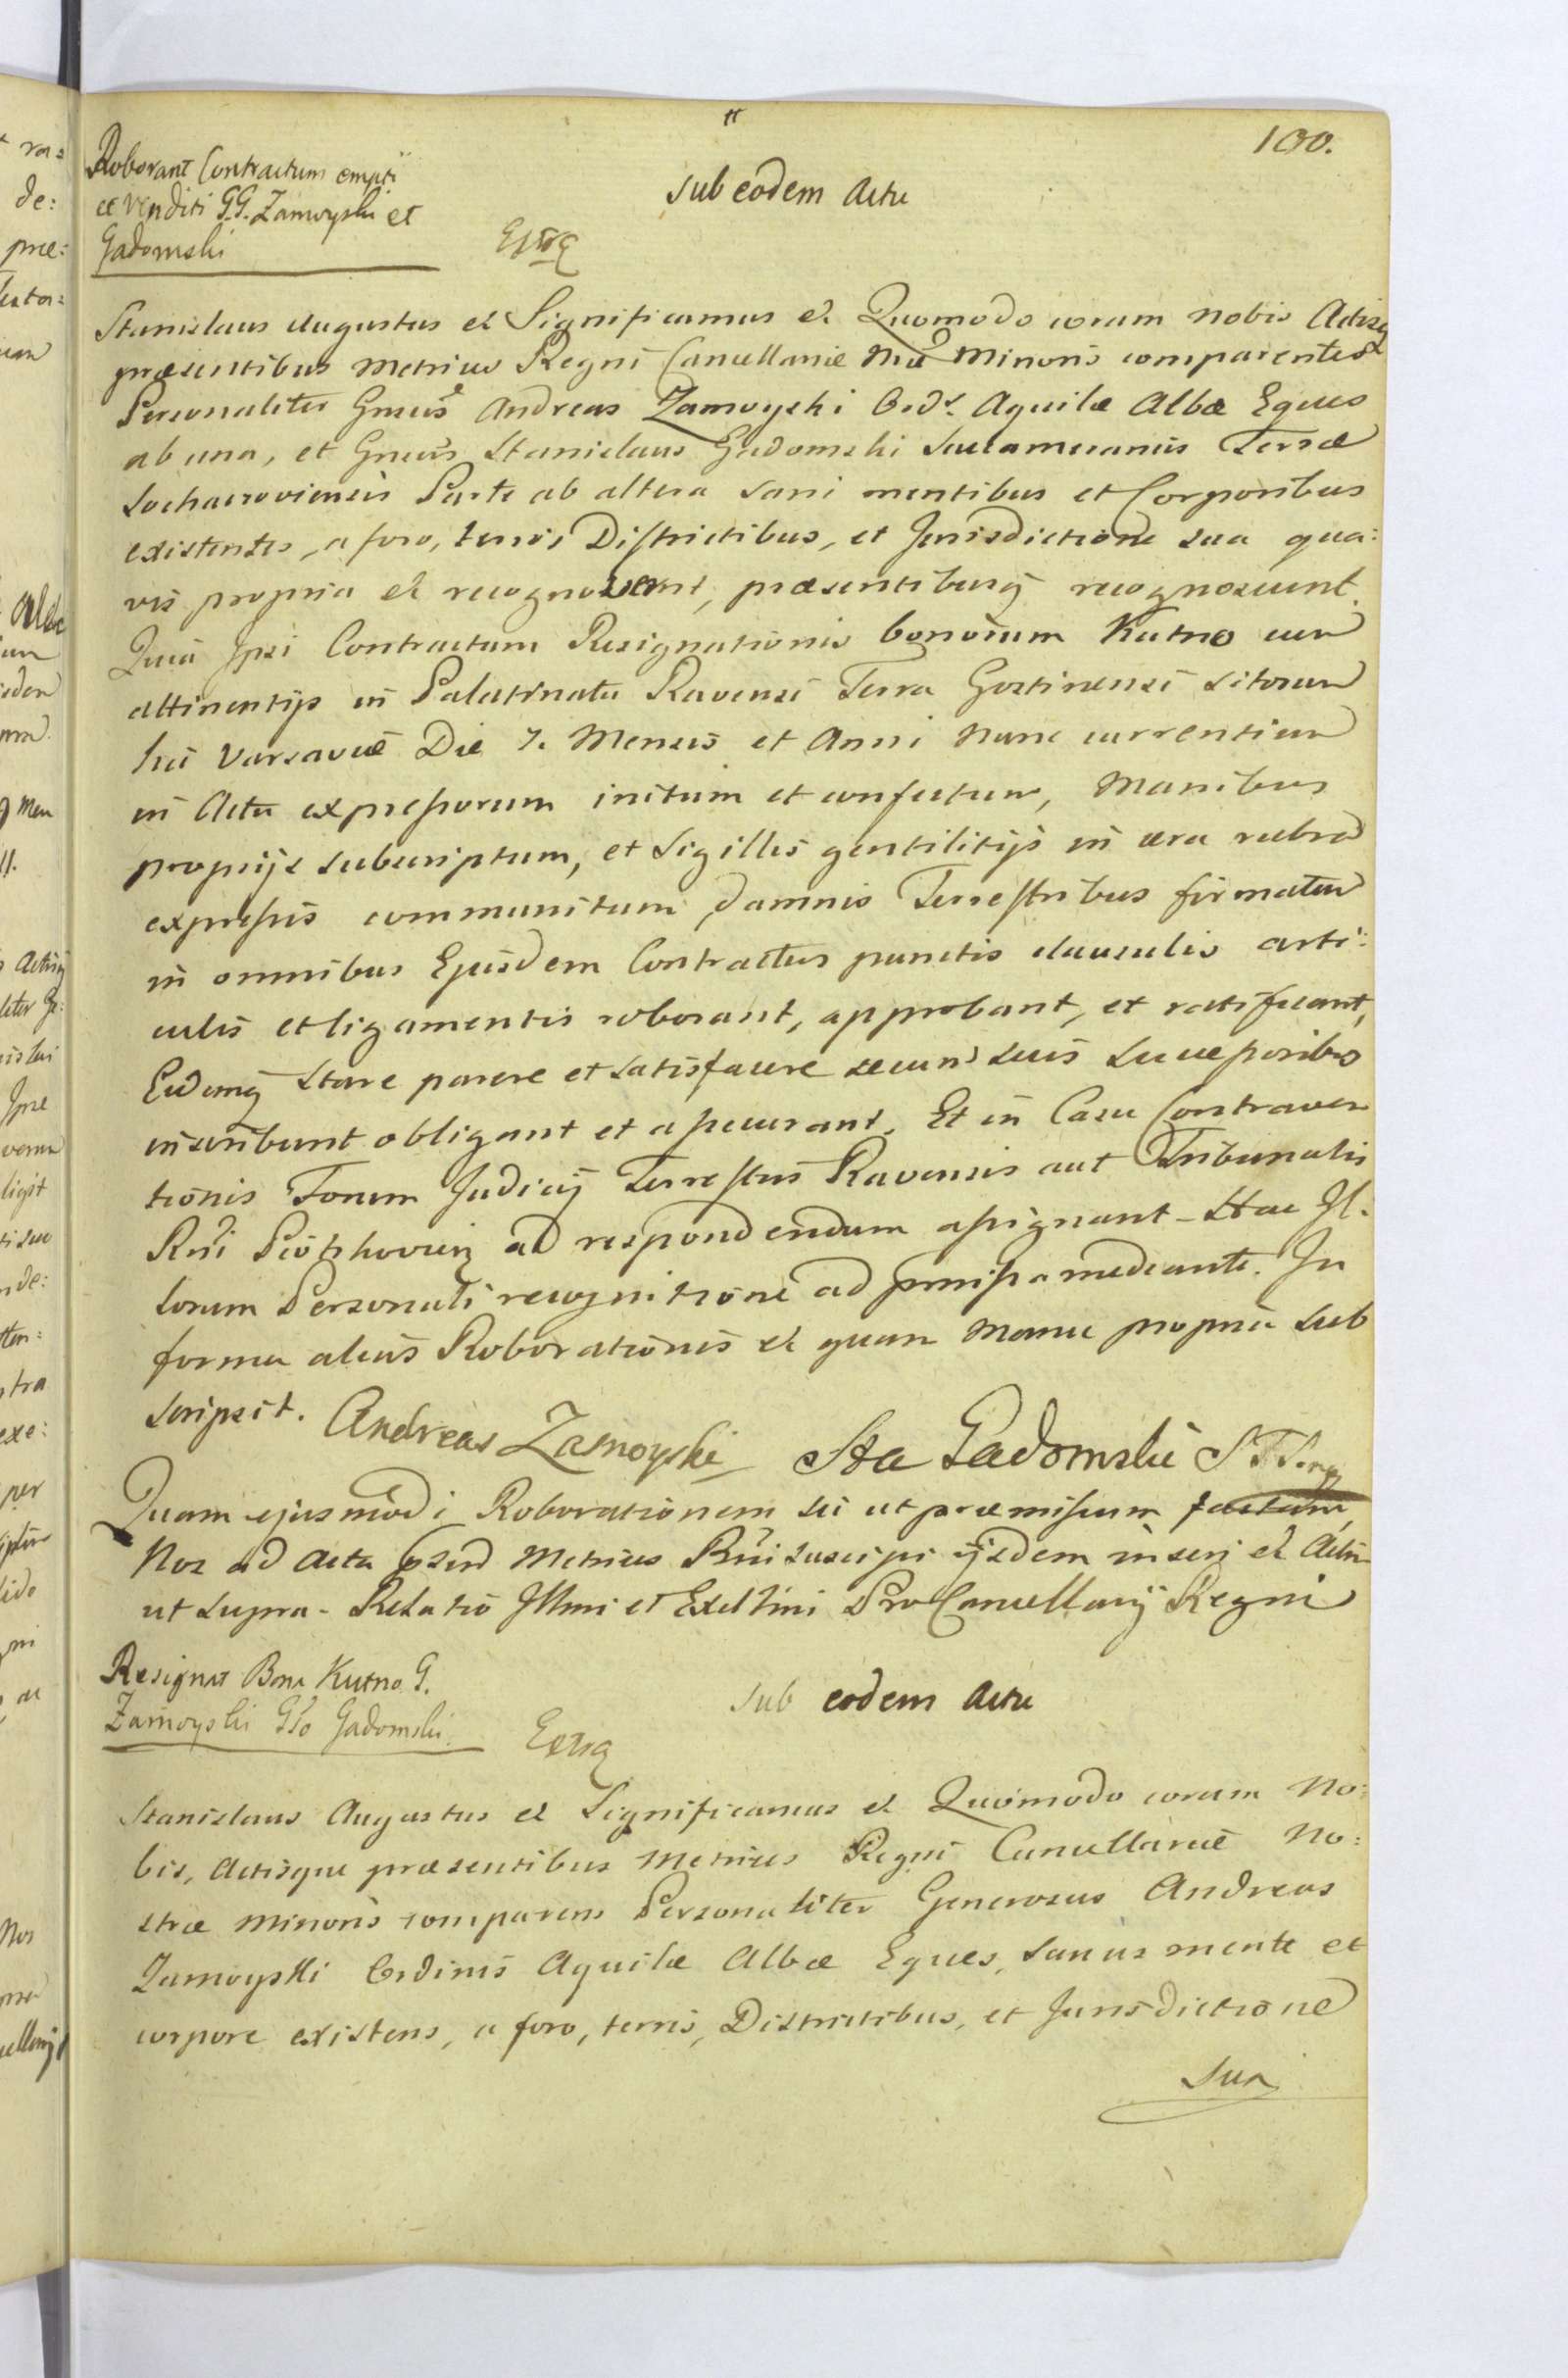 100.
Roborant Contractum empti
et venditi G.G. Zamoyski et
Gadomski
sub eodem Actu
Extra
Stanislaus Augustus et Significamus et Quomodo coram nobis Actisq
præsentibus Metrices Regni Cancellariæ Nræ Minoris comparentes
Personaliter Gnrsus Andreas Zamoyski Ord. Aquilæ Albæ Eques
ab una, et Gnrsus Stanislaus Gadomski Succameranus Terræ
Sochacroviensis Parte ab altera sani mentibus et Corporibus
existentes, a foro, terris Districtibus, et Jurisdictione sua qua:
vis propria et recognoverunt, præsentibusq recognoscunt.
Quia Ipsi Contractum Resignationis bonorum Kutno cum
attinentijs in Palatinatu Ravensi Terra Gostinensi sitorum
hic Varsaviæ Die 7. Mensis et Anni nunc currentium
in Actu expressorum initum et confectum, Manibus
propriis subscriptum, et Sigillis gentilitijs in cera rubra
expressis communitum, damnis Terrestribus firmatum
in omnibus Ejusdem Contractus punctis clausulis arti:
culis et ligamentis roborant, approbant, et ratificant,
Eidemq stare parere et satisfacere secum suis Successoribus
inscribunt obligant et assecurant. Et in Casu Contraven
tionis Forum Judicij Terrestris Ravensis aut Tribunalis
Rni Piotrkovien ad respondendum assignant - Hac Il:
lorum Personali recognitione ad præmissa mediante. In
forma alius Roborationis et quam Manu propria sub
scripsit. Andreas Zamoyski Sta Gadomski S T S
Quam ejusmodi Roborationem sic ut præmissum factam,
Nos ad Acta Metrices Rni suscipi ijsdem inseri et Actu
ut supra - Relatio Illmi et Exclltmi Pro Cancellarij Regni
Resignat Bona Kutno G.
Zamoyski Gso Gadomski.
sub eodem Actu
Extra
Stanislaus Augustus et Significamus et Quomodo coram No:
bis, Actisque præsentibus Metrices Regni Cancellariæ No:
stræ Minoris comparens Personaliter Generosus Andreas
Zamoyski Ordinis Aquilæ Albæ Eques, sanus mente et
corpore existens, a foro, terris, Districtibus, et Jurisdictione
sua